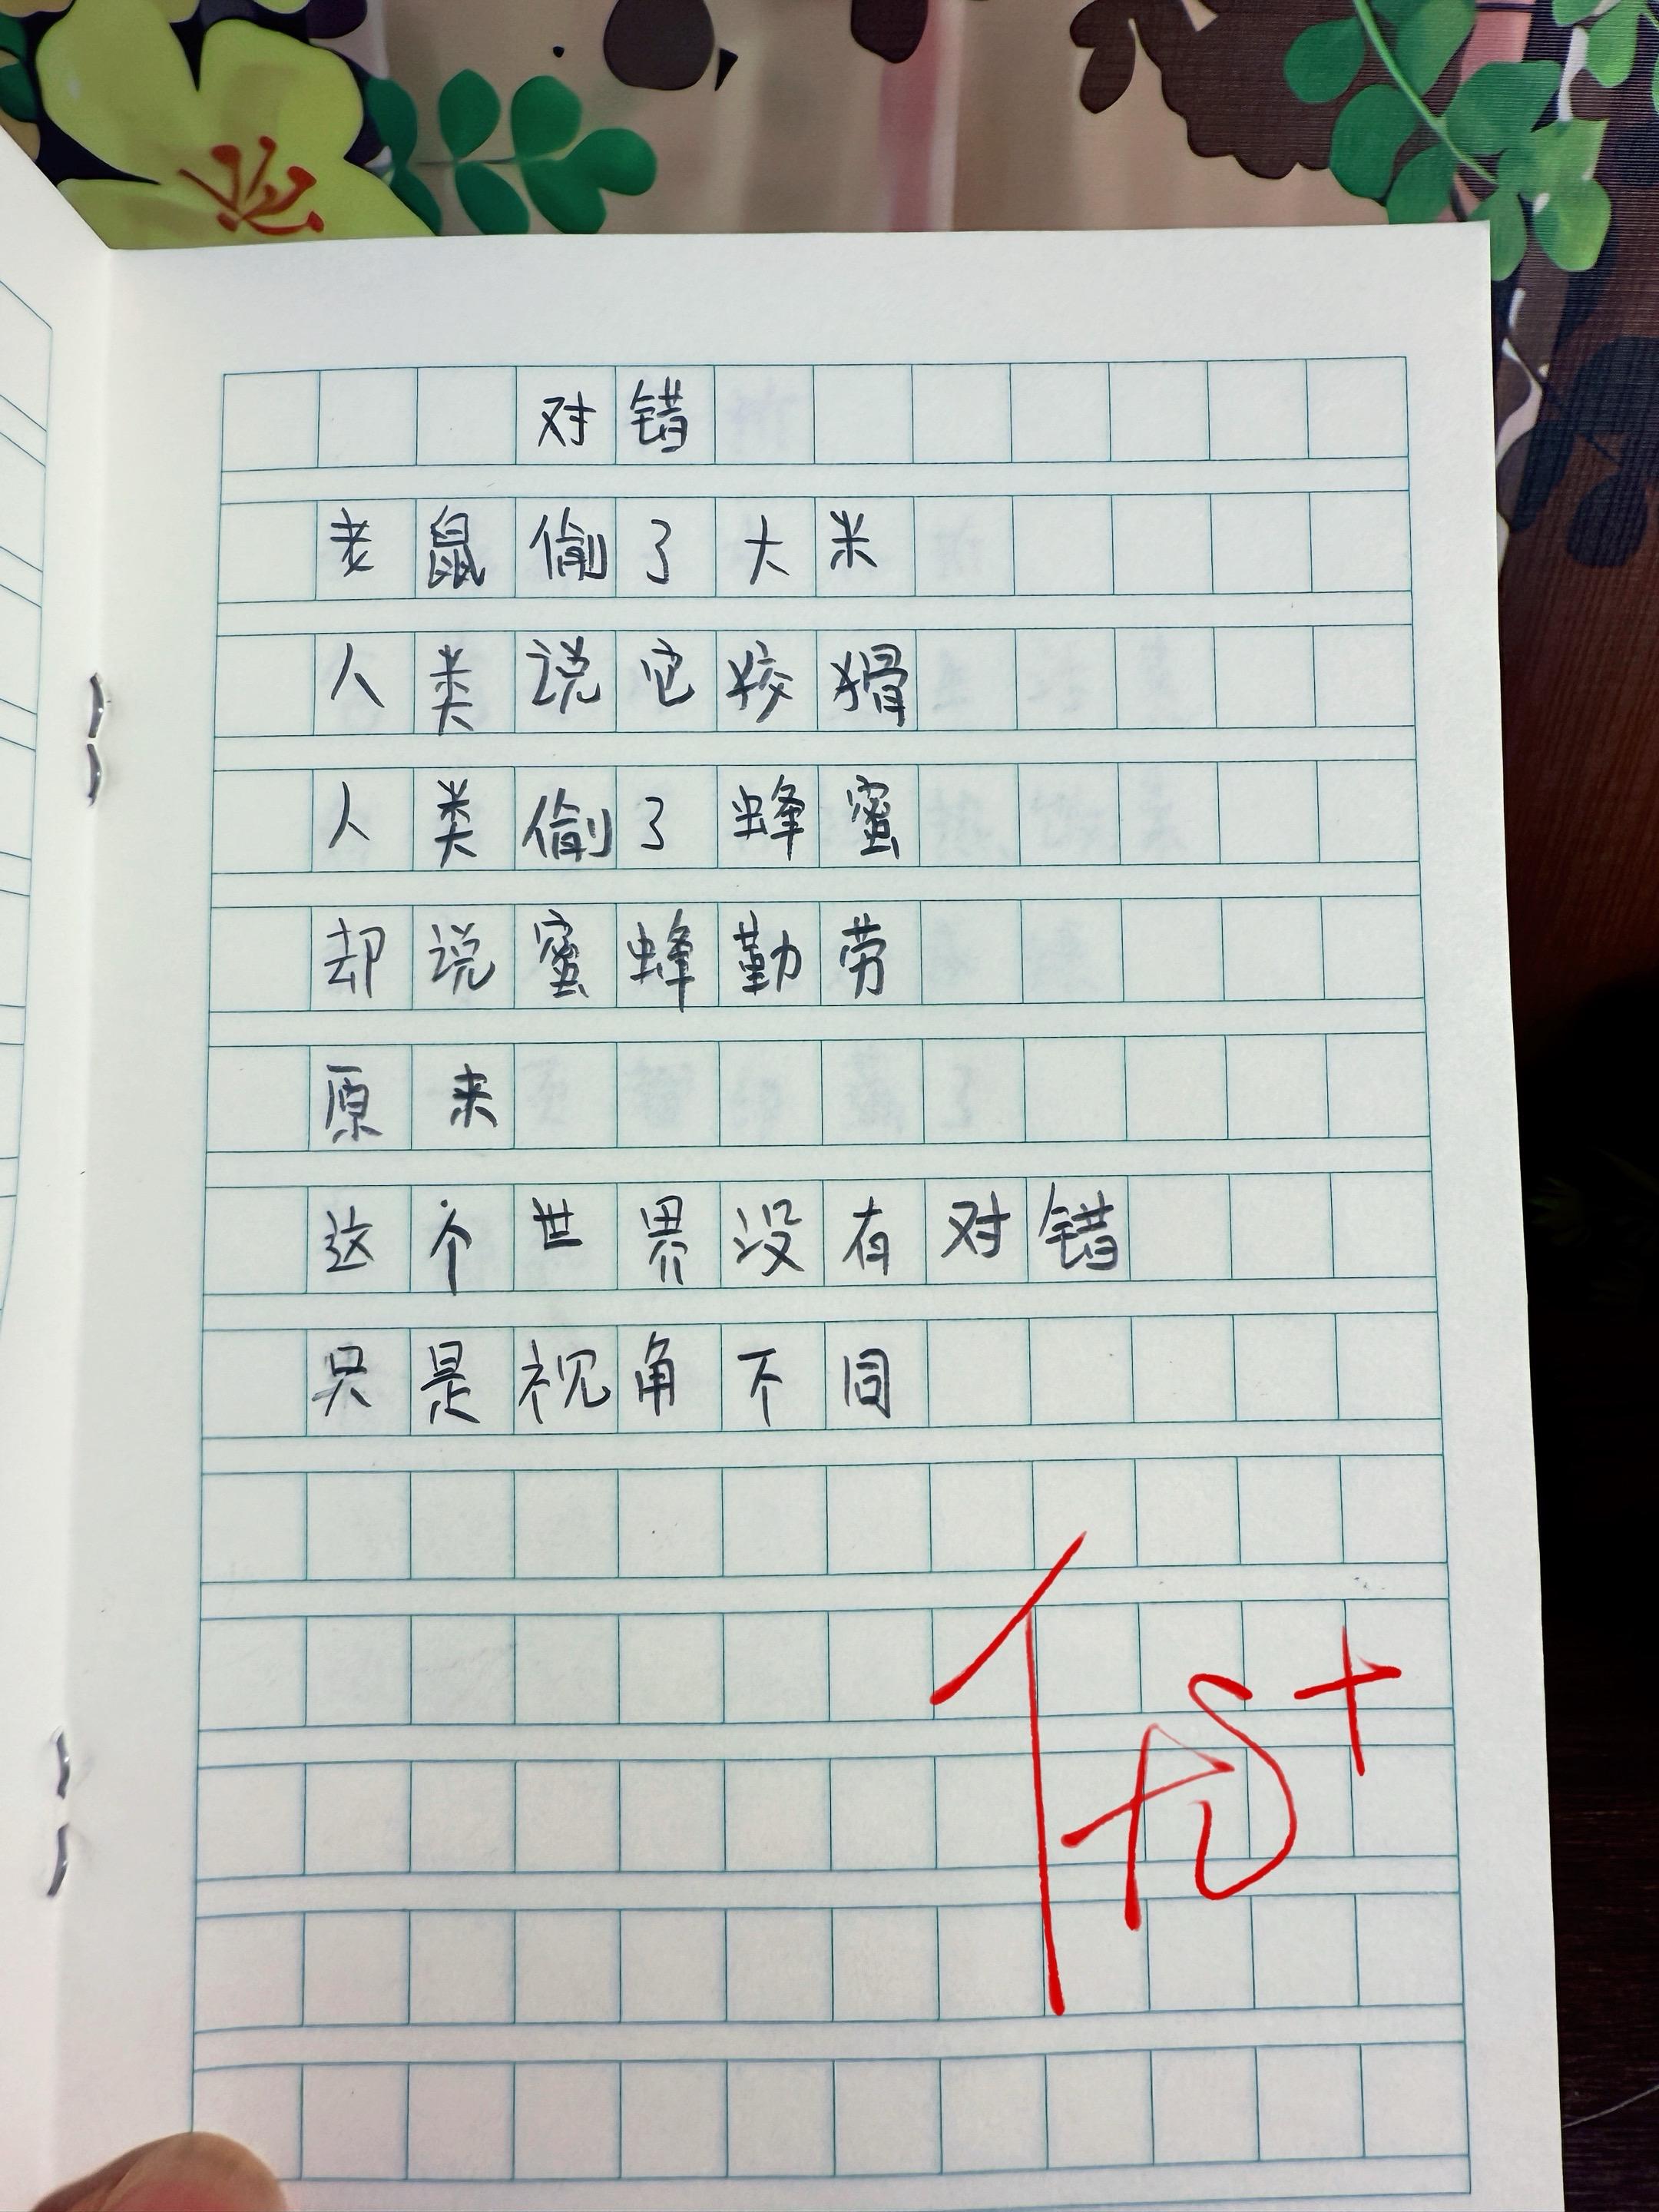 对错
老鼠偷了大米
人类说它狡猾
人类偷了蜂蜜
却说蜜蜂勤劳
原来
这个世界没有对错
只是视角不同
优+